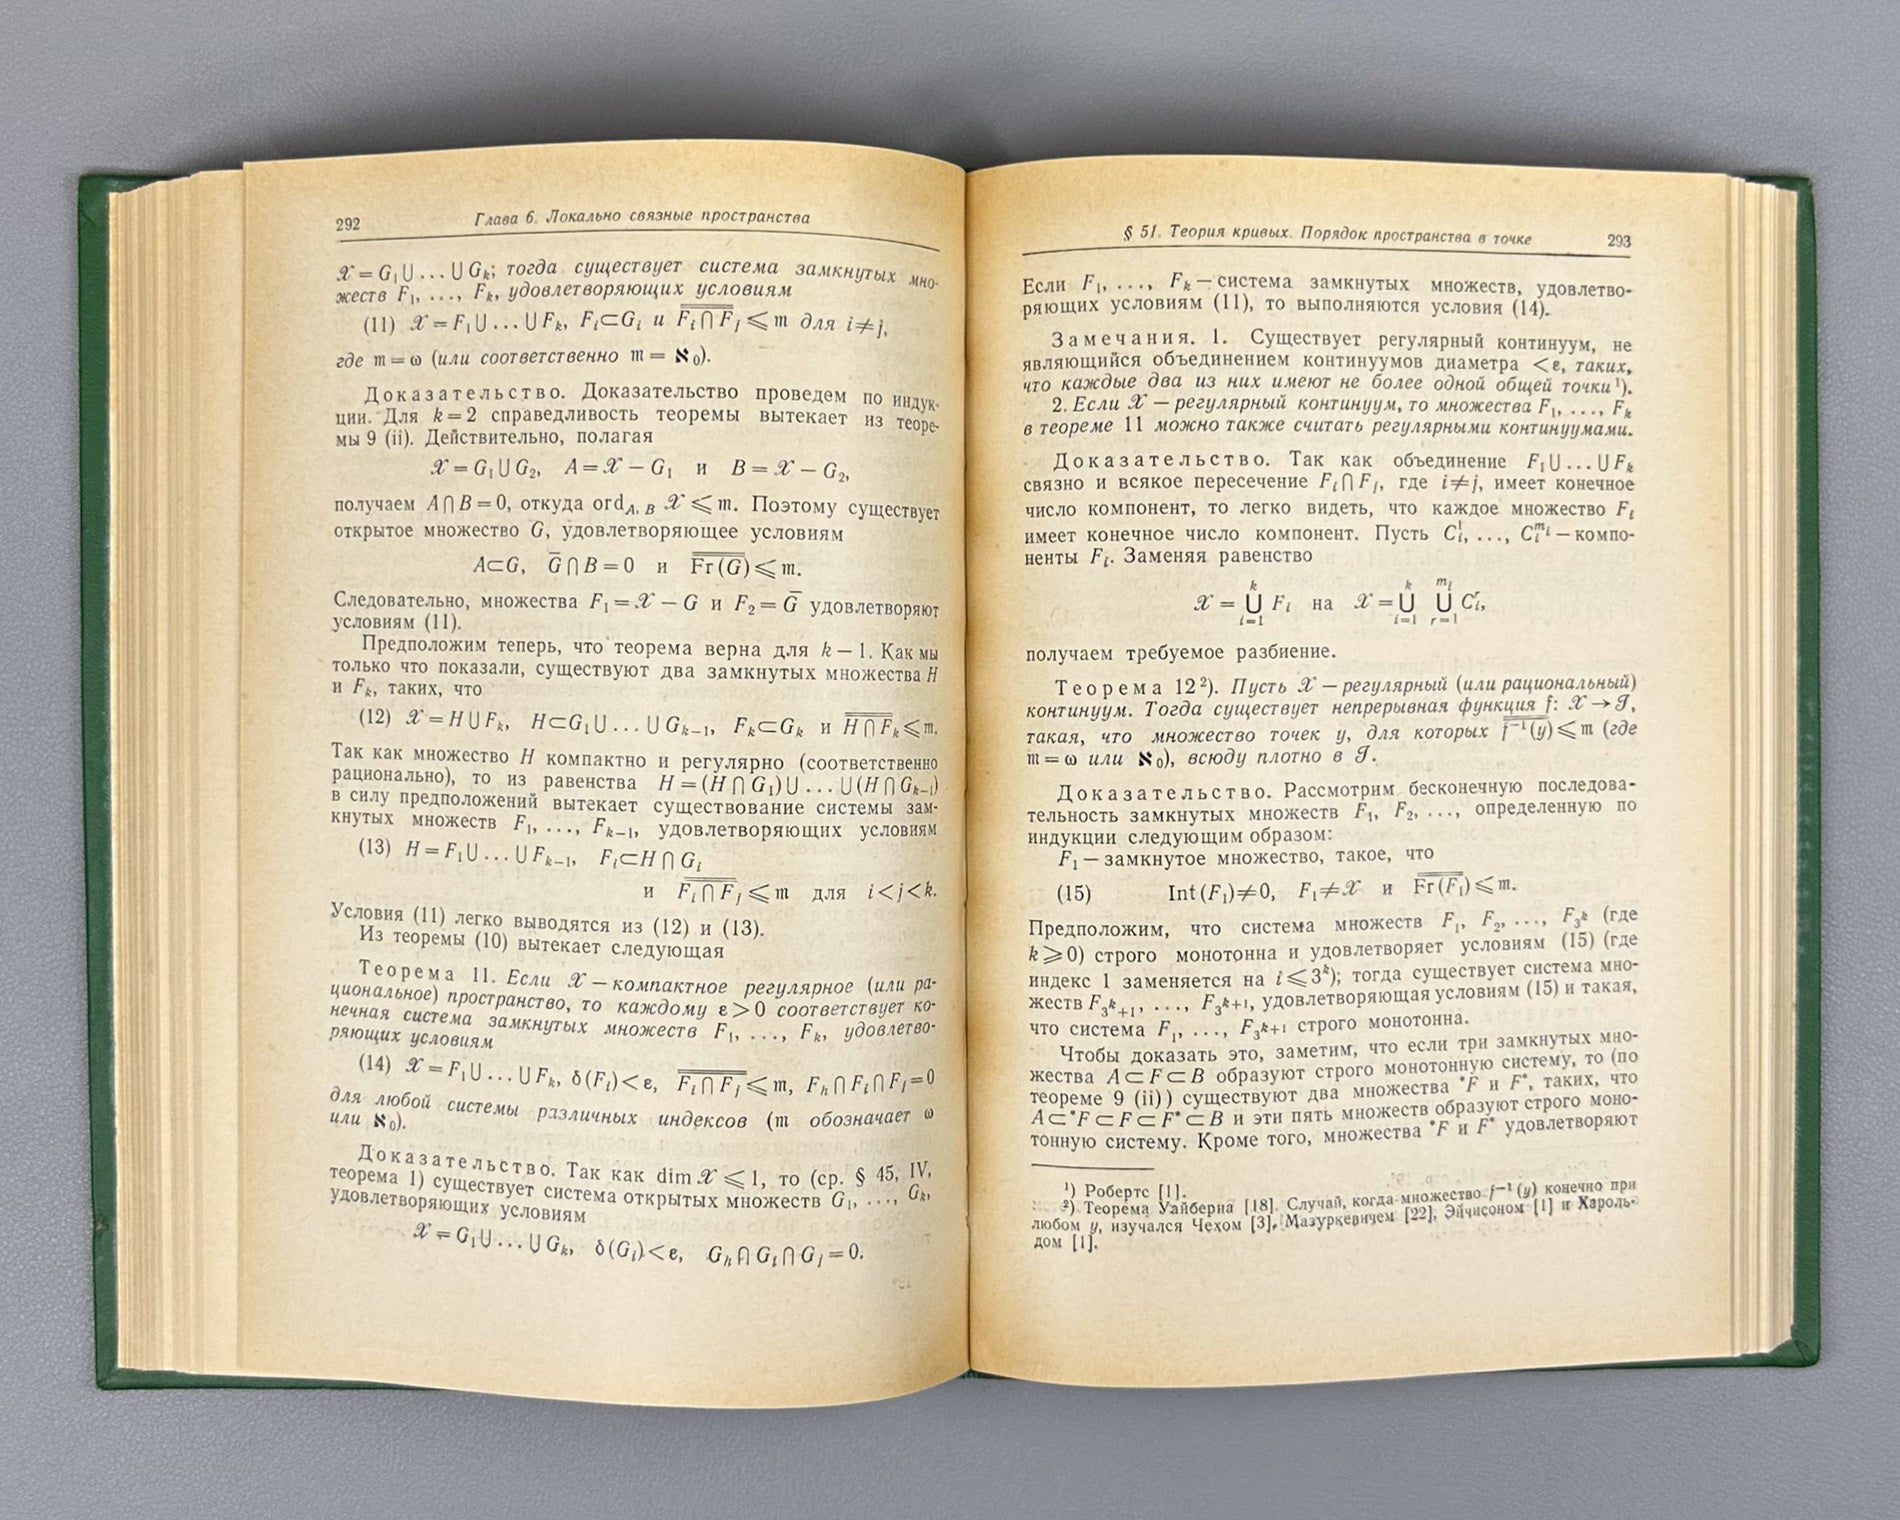 292
Глава 6. Локально связные пространства
𝒳 = G₁ ∪ ... ∪ Gₖ; тогда существует система замкнутых мно-
жеств F₁, ..., Fₖ, удовлетворяющих условиям
(11) 𝒳 = F₁ ∪ ... ∪ Fₖ, Fᵢ ⊂ Gᵢ и \overline{\overline{Fᵢ ∩ Fⱼ}} ⩽ 𝔪 для i ≠ j,
где 𝔪 = ω (или соответственно 𝔪 = ℵ₀).
Доказательство. Доказательство проведем по индук-
ции. Для k = 2 справедливость теоремы вытекает из теоре-
мы 9 (ii). Действительно, полагая
𝒳 = G₁ ∪ G₂, A = 𝒳 − G₁ и B = 𝒳 − G₂,
получаем A ∩ B = 0, откуда ord_{A, B} 𝒳 ⩽ 𝔪. Поэтому существует
открытое множество G, удовлетворяющее условиям
A ⊂ G, \overline{G} ∩ B = 0 и \overline{\overline{Fr (G)}} ⩽ 𝔪.
Следовательно, множества F₁ = 𝒳 − G и F₂ = \overline{G} удовлетворяют
условиям (11).
Предположим теперь, что теорема верна для k − 1. Как мы
только что показали, существуют два замкнутых множества H
и Fₖ, таких, что
(12) 𝒳 = H ∪ Fₖ, H ⊂ G₁ ∪ ... ∪ Gₖ₋₁, Fₖ ⊂ Gₖ и \overline{\overline{H ∩ Fₖ}} ⩽ 𝔪.
Так как множество H компактно и регулярно (соответственно
рационально), то из равенства H = (H ∩ G₁) ∪ ... ∪ (H ∩ Gₖ₋₁)
в силу предположений вытекает существование системы зам-
кнутых множеств F₁, ..., Fₖ₋₁, удовлетворяющих условиям
(13) H = F₁ ∪ ... ∪ Fₖ₋₁, Fᵢ ⊂ H ∩ Gᵢ
и \overline{\overline{Fᵢ ∩ Fⱼ}} ⩽ 𝔪 для i < j < k.
Условия (11) легко выводятся из (12) и (13).
Из теоремы (10) вытекает следующая
Теорема 11. Если 𝒳 — компактное регулярное (или ра-
циональное) пространство, то каждому ε > 0 соответствует ко-
нечная система замкнутых множеств F₁, ..., Fₖ, удовлетво-
ряющих условиям
(14) 𝒳 = F₁ ∪ ... ∪ Fₖ, δ(Fᵢ) < ε, \overline{\overline{Fᵢ ∩ Fⱼ}} ⩽ 𝔪, Fₕ ∩ Fᵢ ∩ Fⱼ = 0
для любой системы различных индексов (𝔪 обозначает ω
или ℵ₀).
Доказательство. Так как dim 𝒳 ⩽ 1, то (ср. § 45, IV,
теорема 1) существует система открытых множеств G₁, ..., Gₖ,
удовлетворяющих условиям
𝒳 = G₁ ∪ ... ∪ Gₖ, δ(Gᵢ) < ε, Gₕ ∩ Gᵢ ∩ Gⱼ = 0.
§ 51. Теория кривых. Порядок пространства в точке
293
Если F₁, ..., Fₖ — система замкнутых множеств, удовлетво-
ряющих условиям (11), то выполняются условия (14).
Замечания. 1. Существует регулярный континуум, не
являющийся объединением континуумов диаметра < ε, таких,
что каждые два из них имеют не более одной общей точки ¹).
2. Если 𝒳 — регулярный континуум, то множества F₁, ..., Fₖ
в теореме 11 можно также считать регулярными континуумами.
Доказательство. Так как объединение F₁ ∪ ... ∪ Fₖ
связно и всякое пересечение Fᵢ ∩ Fⱼ, где i ≠ j, имеет конечное
число компонент, то легко видеть, что каждое множество Fᵢ
имеет конечное число компонент. Пусть C_i^1, ..., C_i^{m_i} — компо-
ненты Fᵢ. Заменяя равенство
𝒳 = ⋃_{i=1}^{k} Fᵢ на 𝒳 = ⋃_{i=1}^{k} ⋃_{r=1}^{m_i} C_i^r,
получаем требуемое разбиение.
Теорема 12 ²). Пусть 𝒳 — регулярный (или рациональный)
континуум. Тогда существует непрерывная функция f: 𝒳 → 𝒥,
такая, что множество точек y, для которых \overline{\overline{f⁻¹(y)}} ⩽ 𝔪 (где
𝔪 = ω или ℵ₀), всюду плотно в 𝒥.
Доказательство. Рассмотрим бесконечную последова-
тельность замкнутых множеств F₁, F₂, ..., определенную по
индукции следующим образом:
F₁ — замкнутое множество, такое, что
(15) Int (F₁) ≠ 0, F₁ ≠ 𝒳 и \overline{\overline{Fr (F₁)}} ⩽ 𝔪.
Предположим, что система множеств F₁, F₂, ..., F_{3^k} (где
k ⩾ 0) строго монотонна и удовлетворяет условиям (15) (где
индекс 1 заменяется на i ⩽ 3^k); тогда существует система мно-
жеств F_{3^k+1}, ..., F_{3^{k+1}}, удовлетворяющая условиям (15) и такая,
что система F₁, ..., F_{3^{k+1}} строго монотонна.
Чтобы доказать это, заметим, что если три замкнутых мно-
жества A ⊂ F ⊂ B образуют строго монотонную систему, то (по
теореме 9 (ii)) существуют два множества *F и F*, таких, что
A ⊂ *F ⊂ F ⊂ F* ⊂ B и эти пять множеств образуют строго моно-
тонную систему. Кроме того, множества *F и F* удовлетворяют
¹) Робертс [1].
²) Теорема Уайберна [18]. Случай, когда множество f⁻¹(y) конечно при
любом y, изучался Чехом [3], Мазуркевичем [22], Эйчисоном [1] и Хароль-
дом [1].